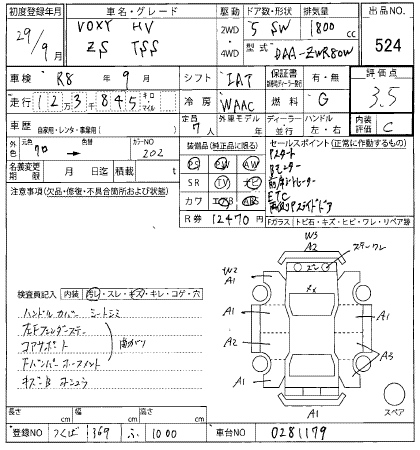 初度登録年月 車名・グレード 駆動 ドア数・形状 排気量 出品NO.
29/9月 VOXY HV 2WD 5 SW 1800 cc 524
ZS TSS 4WD 型式 DAA-ZWR80W
車検 R8年 9月 シフト IAT 保証書 有・無 評価点
走行 12万3千845 キロ マイル 冷房 WAAC 燃料 G 3.5
車歴 自家用・レンタ・事業用( ) 定員 7人 外車モデル 年 ディーラー 並行 ハンドル 左・右 内装評価 C
外色 クロ 色替 カラーNO 202 装備品(純正品に限る) セールスポイント(正常に作動するもの)
名義変更期限 月 日迄 積載 t PS PW AW Pスタート
注意事項(欠品・修復・不具合箇所および状態) SR TV ナビ Bモニター
カワ エアB ABS ETC
R券 12470円 両側Pスライドドア
Fガラス トビ石・キズ・ヒビ・ワレ・リペア跡
W3
A2
W2 A1 A1
A1 A2 A3
A1
A1
スペア
検査員記入 内装 汚レ・スレ・キズ・キレ・コゲ・穴
ハンドルカバー シートシミ
コアサポート 曲がり
長さ cm 幅 cm 高さ cm
登録NO つくば 369 ふ 1000 車台NO 0281179